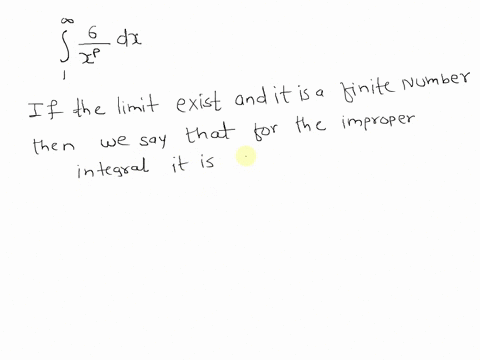 ∫₁^∞ 6/xᵖ dx
If the limit exist and it is a finite number
then we say that for the improper
integral it is